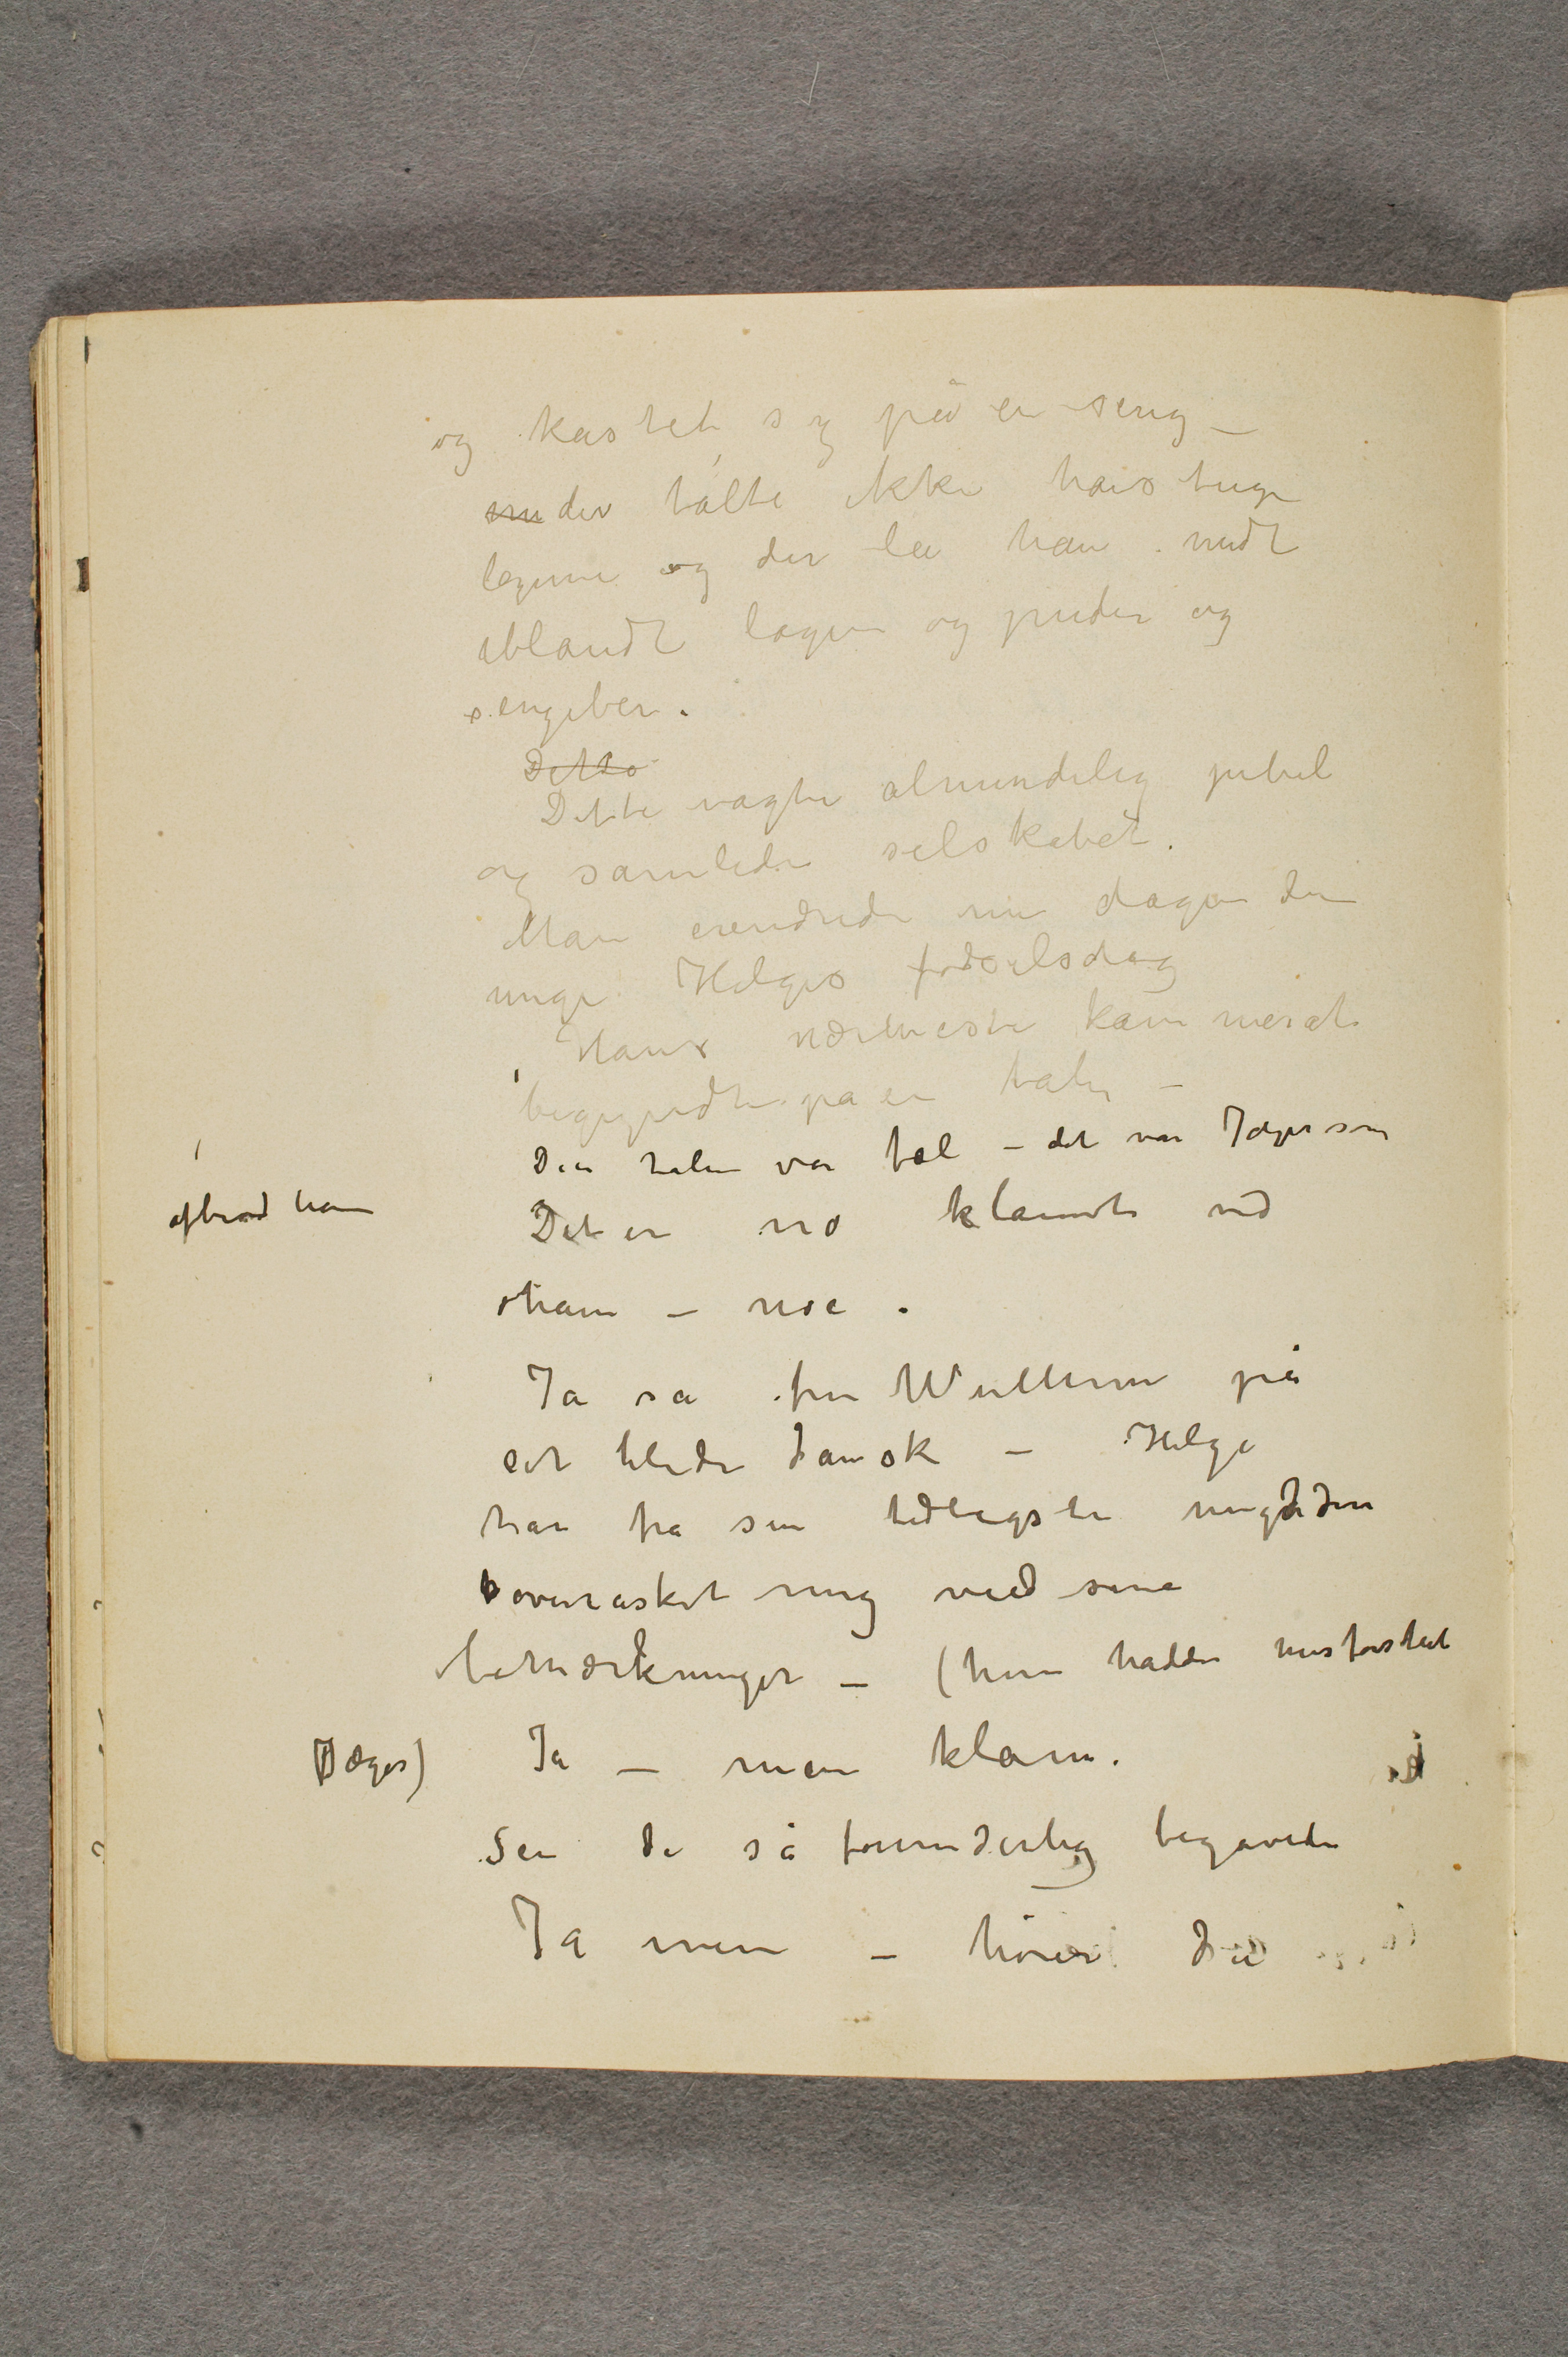 og kastet sig på en seng –
en der tålte ikke hans tunge
legeme og der lå han midt
iblandt lagen og puder og
sengeben.
Dette
Dette vagte almindelig jubel
og samlede selskabet.
Man erendrede nu dagen den
unge Helges fødselsdag
Hans nærmeste kammerat
begyndte på en tale –
Den talen var tæl – det var Jæger som
afbrød ham
Det er no klamt ved
ham – noe.
Ja sa fru Wullum på
sit blide dansk – Helge
har fra sin tidligste ungdom
overrasket mig ved sine
bemærkninger – (hun hadde misforståt
(Jæger) Ja – men klam.
Sen de så forunderlig begavede
Ja men – hører du